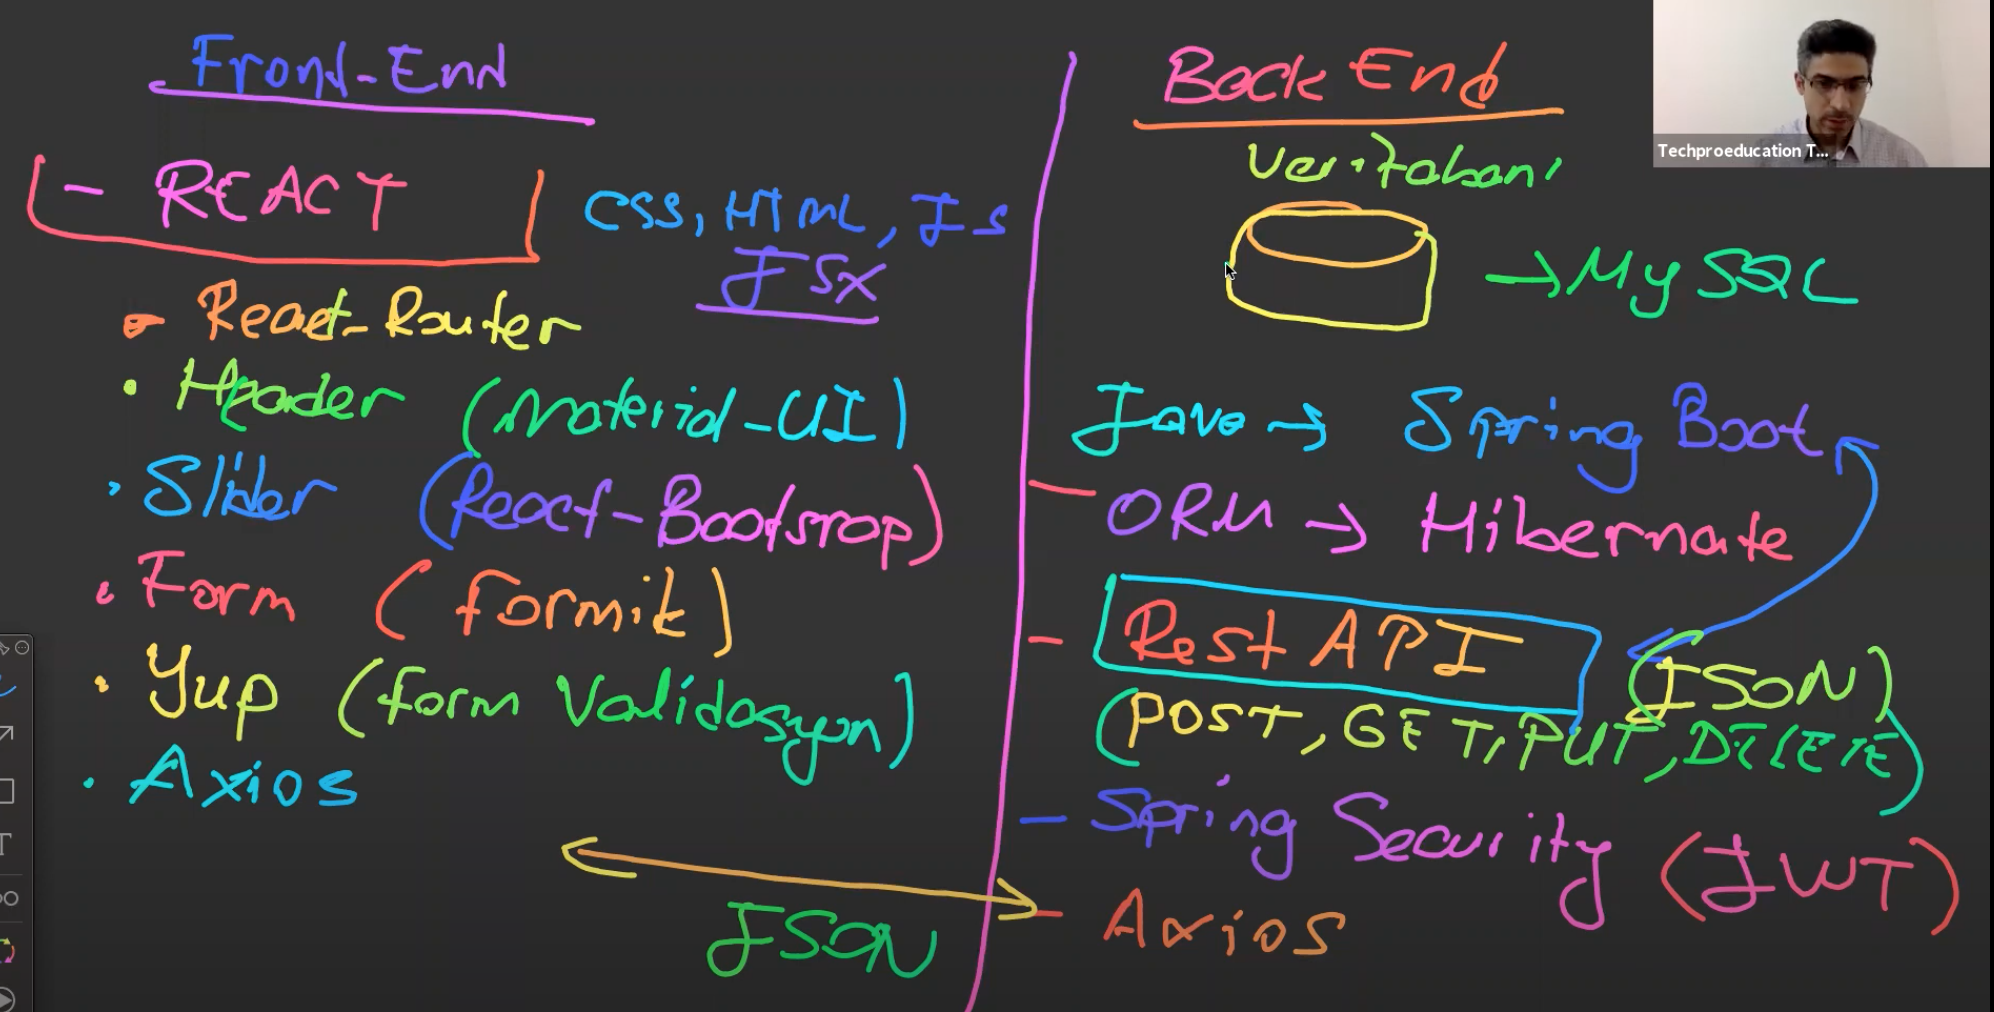 Front-End
- REACT
CSS, HTML, JS
JSX
React-Router
• Header (Material-UI)
• Slider (React-Bootsrap)
• Form (formik)
• Yup (form Validasyon)
• Axios
JSON
Back End
Veritabanı
→ MySQL
Java → Spring Boot
- ORM → Hibernate
- Rest API (JSON)
(POST, GET, PUT, DELETE)
- Spring Security (JWT)
- Axios
Techproeducation T...